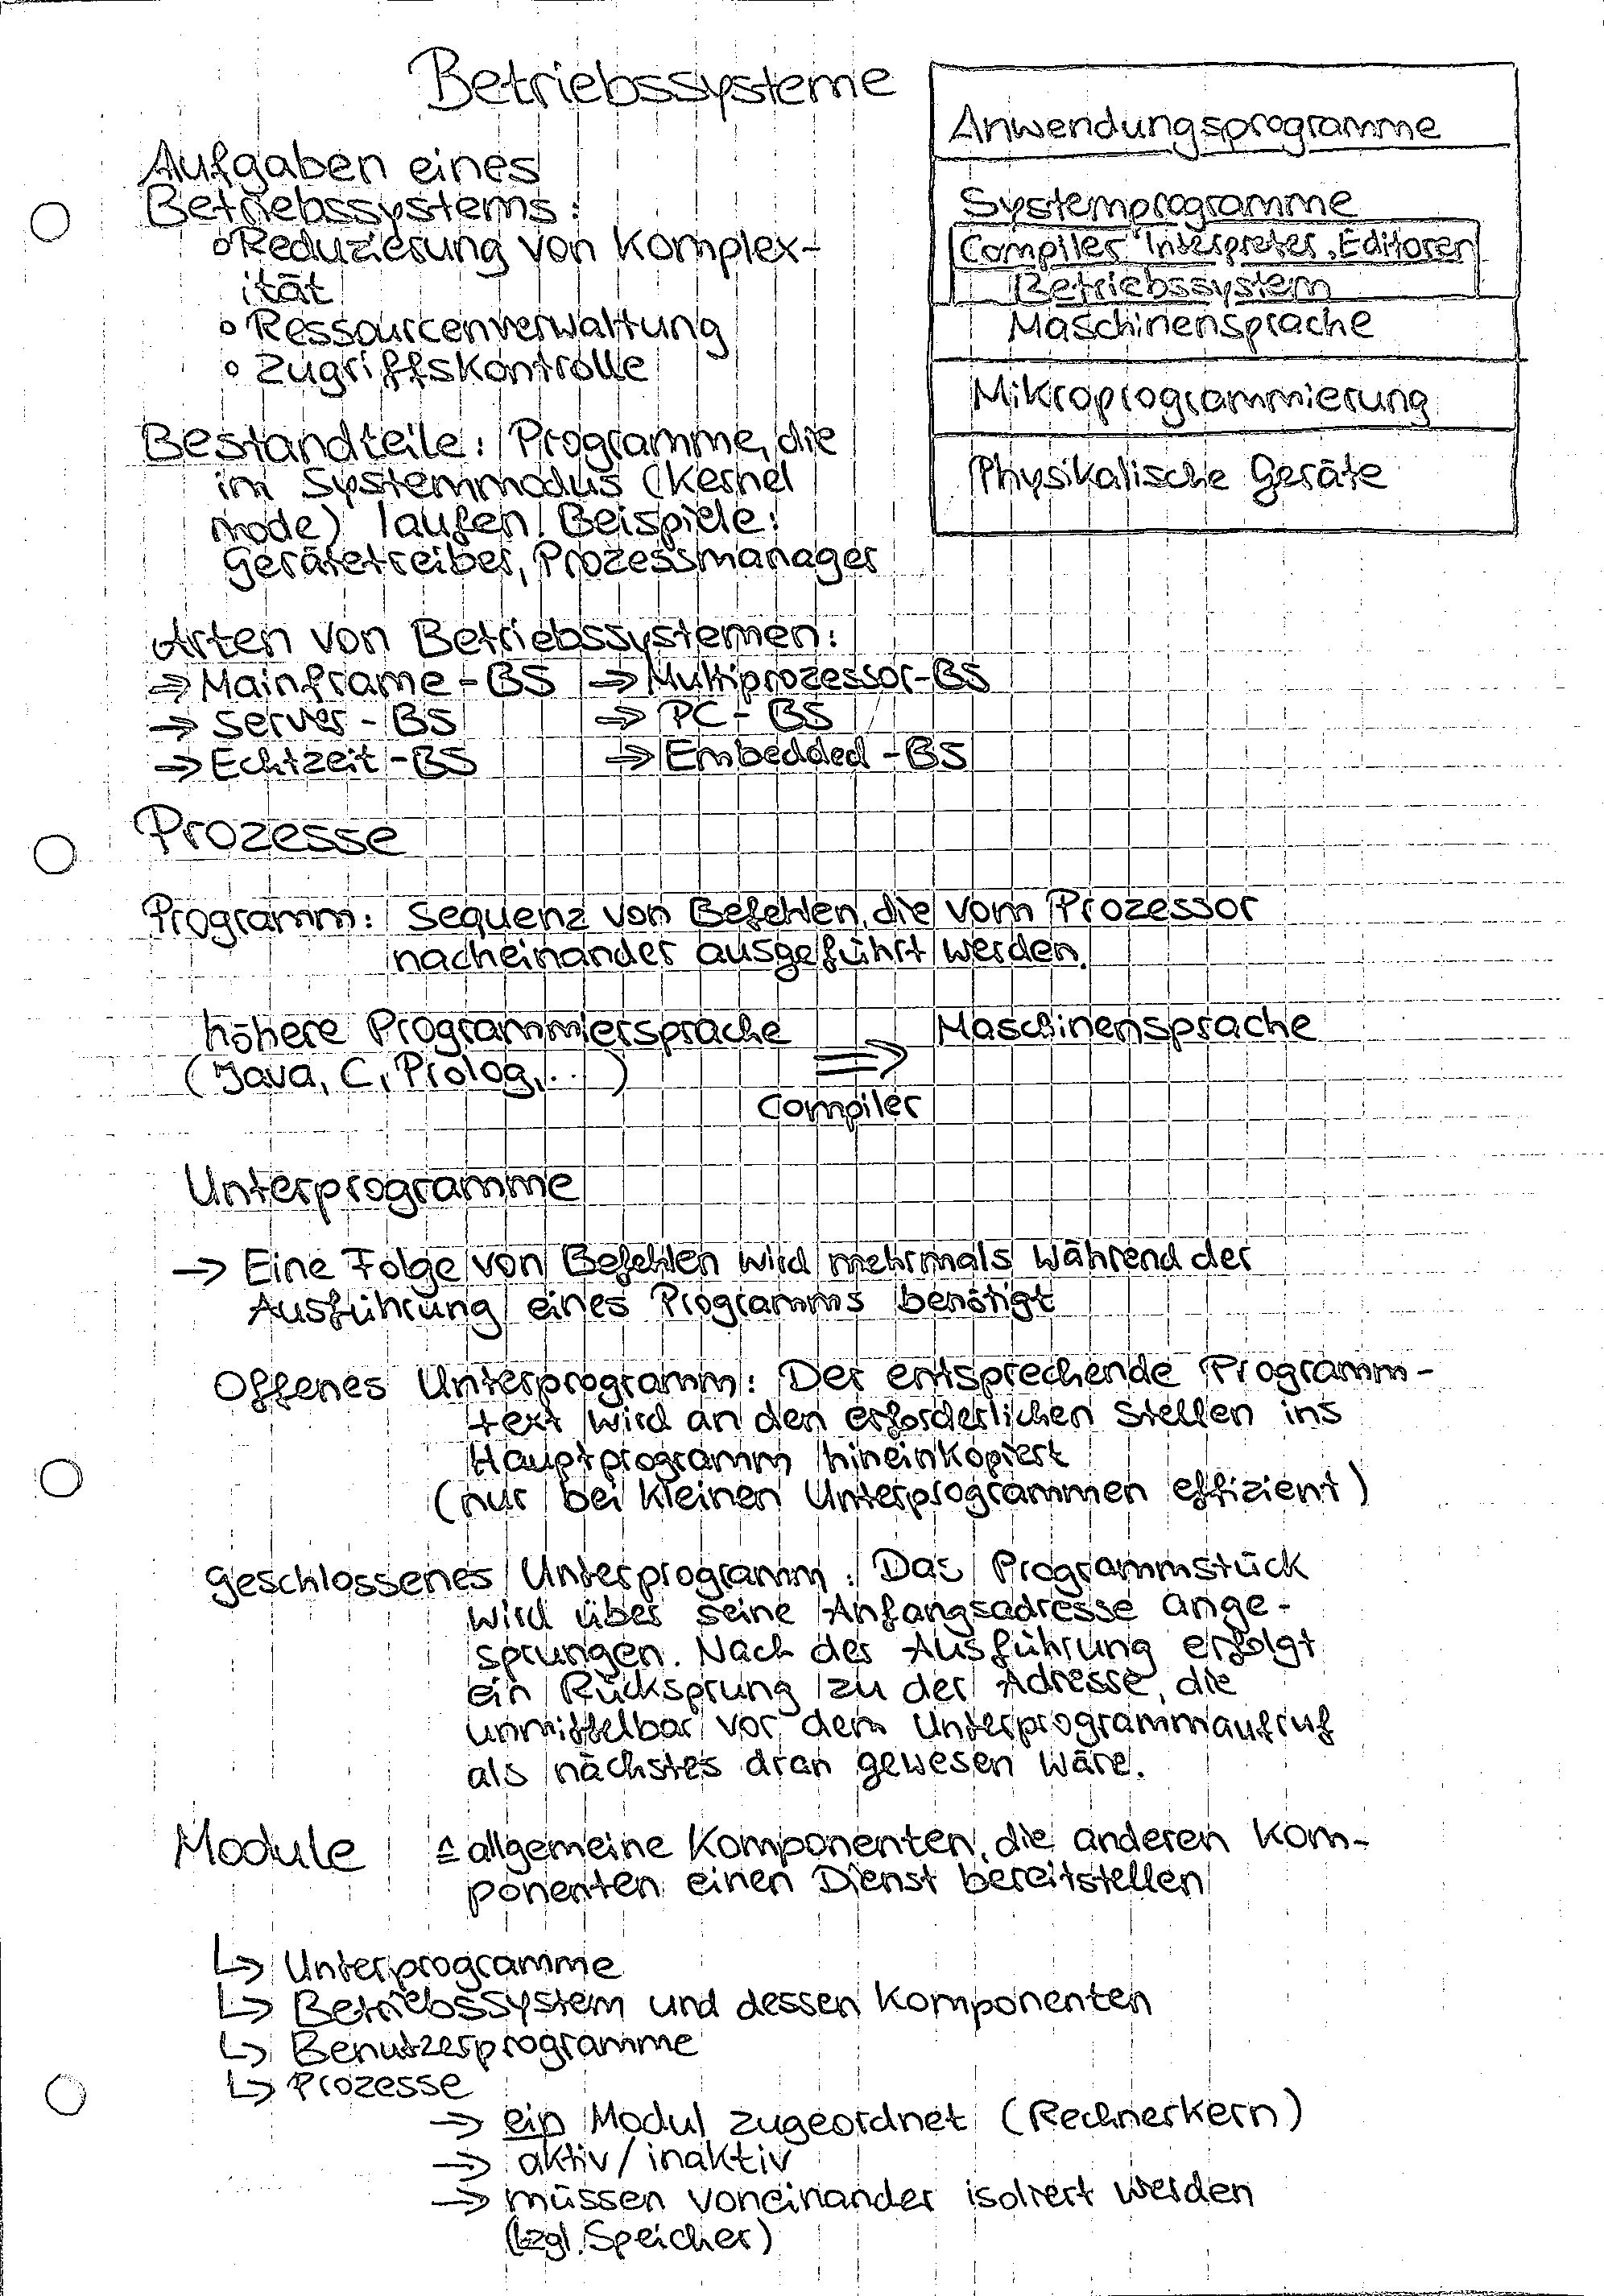 Betriebssysteme
Aufgaben eines
Betriebssystems:
o Reduzierung von Komplex-
ität
o Ressourcenverwaltung
o Zugriffskontrolle
Bestandteile: Programme, die
im Systemmodus (Kernel
mode) laufen. Beispiele:
Gerätetreiber, Prozessmanager
Anwendungsprogramme
Systemprogramme
Compiler, Interpreter, Editoren
Betriebssystem
Maschinensprache
Mikroprogrammierung
Physikalische Geräte
Arten von Betriebssystemen:
⇒ Mainframe-BS ⇒ Multiprozessor-BS
⇒ Server-BS ⇒ PC-BS
⇒ Echtzeit-BS ⇒ Embedded-BS
Prozesse
Programm: Sequenz von Befehlen, die vom Prozessor
nacheinander ausgeführt werden.
höhere Programmiersprache ⇒ Maschinensprache
(Java, C, Prolog, ...)
Compiler
Unterprogramme
→ Eine Folge von Befehlen wird mehrmals während der
Ausführung eines Programms benötigt
Offenes Unterprogramm: Der entsprechende Programm-
text wird an den erforderlichen Stellen ins
Hauptprogramm hineinkopiert
(nur bei kleinen Unterprogrammen effizient)
Geschlossenes Unterprogramm: Das Programmstück
wird über seine Anfangsadresse ange-
sprungen. Nach der Ausführung erfolgt
ein Rücksprung zu der Adresse, die
unmittelbar vor dem Unterprogrammaufruf
als nächstes dran gewesen wäre.
Module ≙ allgemeine Komponenten, die anderen Kom-
ponenten einen Dienst bereitstellen
↳ Unterprogramme
↳ Betriebssystem und dessen Komponenten
↳ Benutzerprogramme
↳ Prozesse
→ ein Modul zugeordnet (Rechnerkern)
→ aktiv/inaktiv
→ müssen voneinander isoliert werden
(bzgl. Speicher)